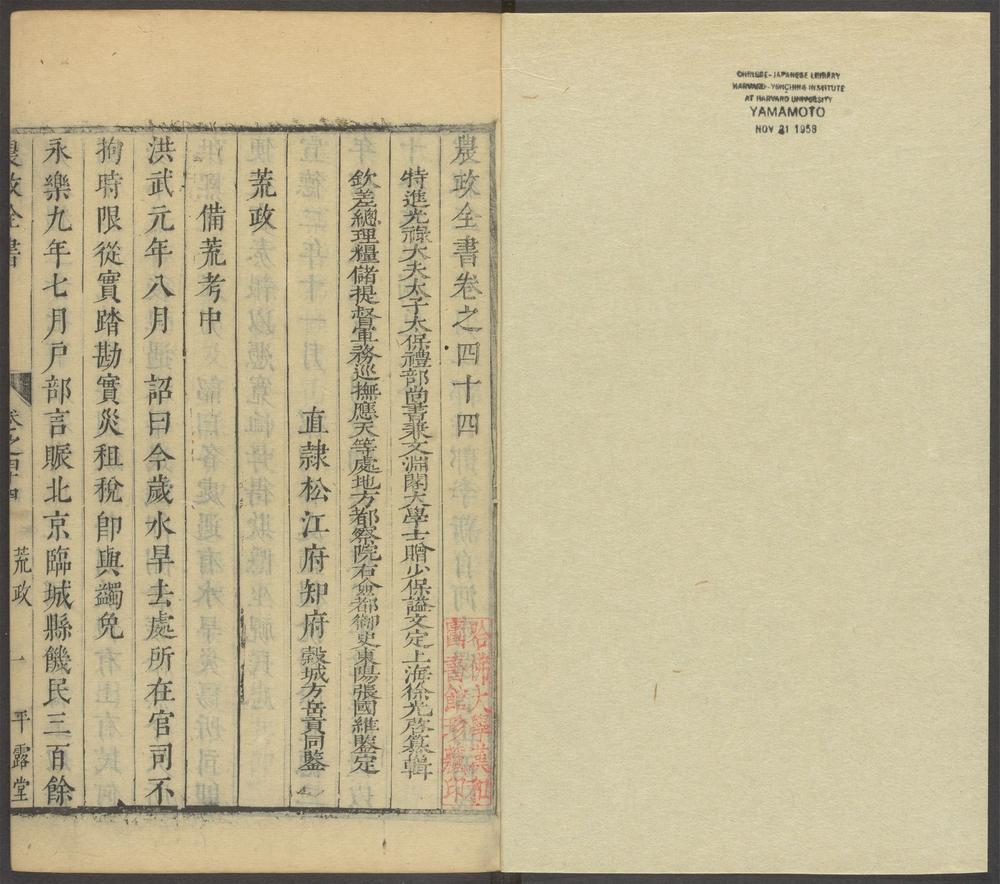 CHINESE-JAPANESE LIBRARY
HARVARD-YENCHING INSTITUTE
AT HARVARD UNIVERSITY
YAMAMOTO
NOV 21 1958
農政全書卷之四十四
特進光祿大夫太子太保禮部尚書兼文淵閣大學士贈少保謚文定上海徐光啓纂輯
欽差總理糧儲提督軍務巡撫應天等處地方都察院右僉都御史東陽張國維鑒定
直隷松江府知府穀城方岳貢同鑒
荒政
備荒考中
洪武元年八月詔曰今歲水旱去處所在官司不
拘時限從實踏勘實災租稅卽與蠲免
永樂九年七月戸部言賑北京臨城縣饑民三百餘
農政全書
卷之四十四
荒政
一
平露堂
哈佛大學漢和
圖書館珍藏印